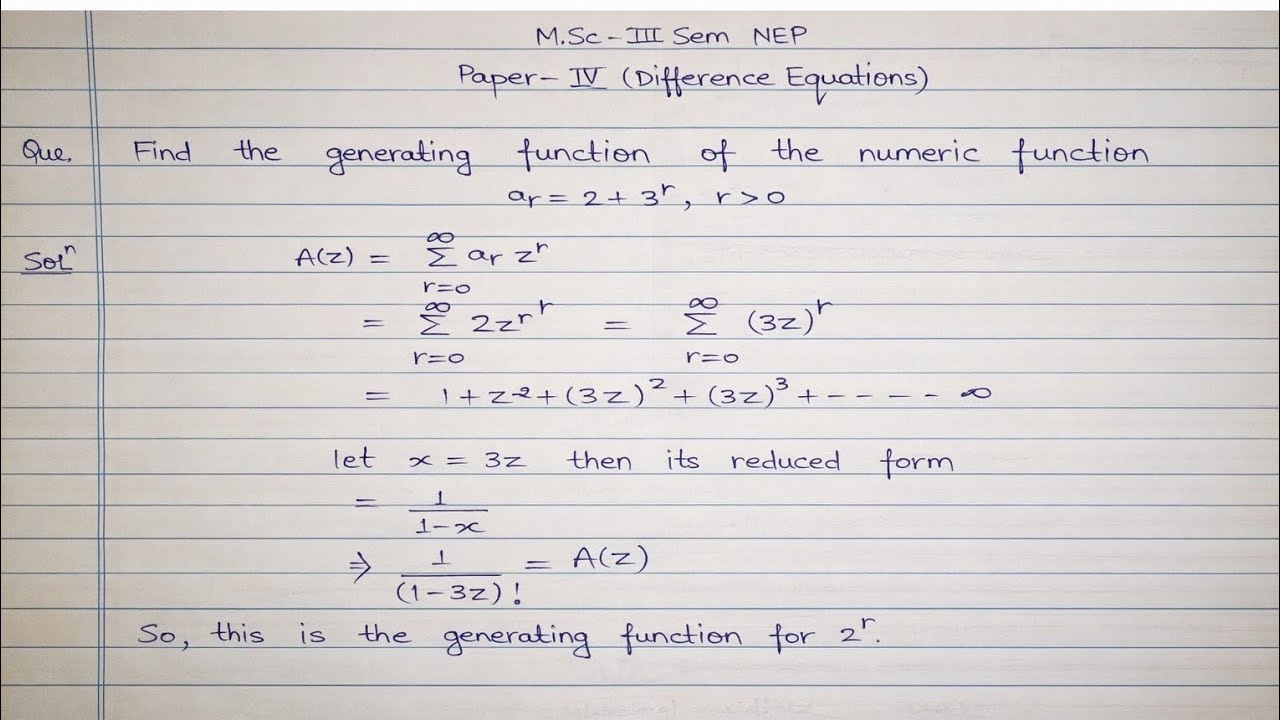 M.Sc - III Sem NEP
Paper - IV (Difference Equations)
Que. Find the generating function of the numeric function
aᵣ = 2 + 3ʳ, r > 0
Solⁿ A(z) = ∞ Σ r=0 aᵣ zʳ
= ∞ Σ r=0 2zʳ ʳ = ∞ Σ r=0 (3z)ʳ
= 1 + z-2 + (3z)² + (3z)³ + - - - - ∞
let x = 3z then its reduced form
= 1/(1-x)
⇒ 1/(1-3z)! = A(z)
So, this is the generating function for 2ʳ.